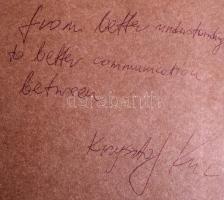 from better understanding
to better communication
between
Krzysztof
darabanth